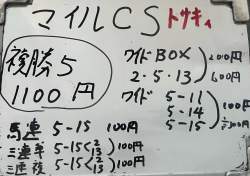 マイルCS トサキィ
複勝5
1100円
ワイドBOX
2・5・13
600円
ワイド 5-11
5-14
5-15
100円
馬連 5-15 100円
三連単 5-15< 2 13
三連複 5-15< 2 13
100円